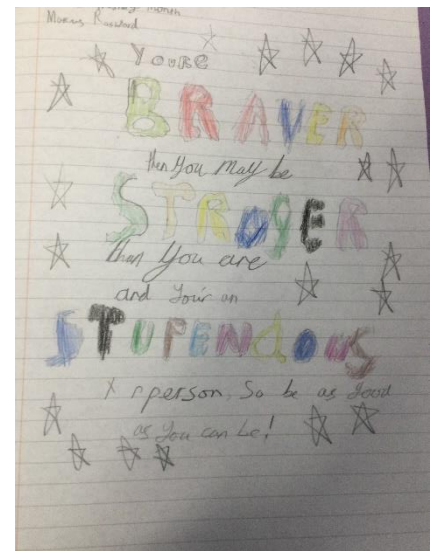 Month
Marcus Rashford
Youre
BRAVER
then You May be
STROGER
than You are
and Your an
STUPENDOUS
person, So be as good
as You can be!